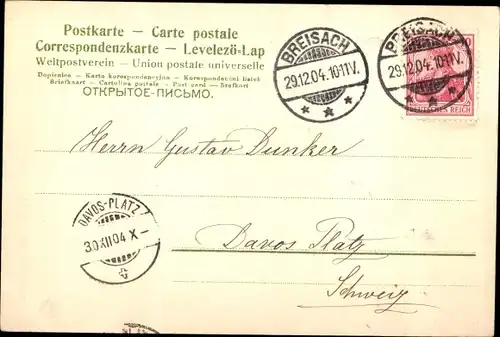 Postkarte — Carte postale
Correspondenzkarte — Levelezö-Lap
Weltpostverein — Union postale universelle
Dopisnice — Karta korespondencyjna — Korespondenčni listek
Briefkaart — Cartolina postale — Post card — Brefkort
ОТКРЫТОЕ-ПИСЬМО.
BREISACH
29.12.04.10-11V.
* * *
BREISACH
29.12.04.10-11V.
* * *
DEUTSCHES REICH
Herrn Gustav Dunker
DAVOS-PLATZ
30.XII.04 X-
Davos Platz
Schweiz